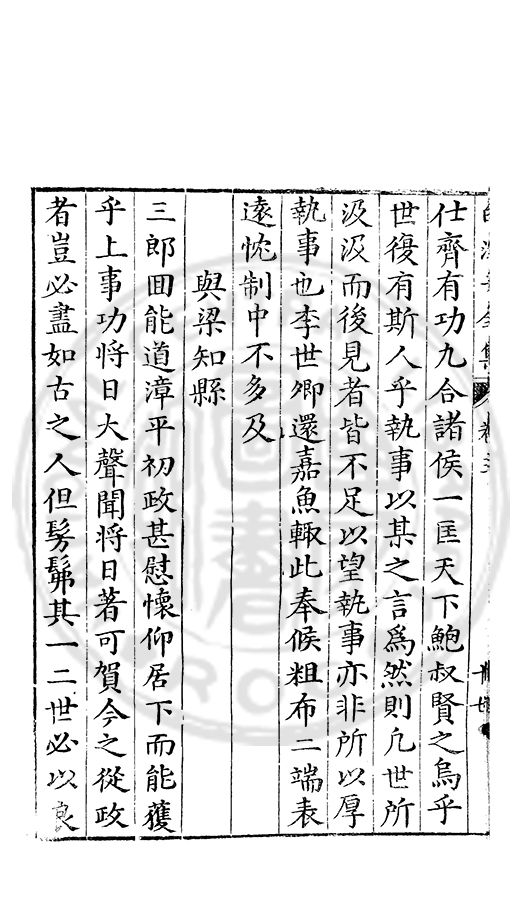 仕齊有功九合諸侯一匡天下鮑叔賢之烏乎
世復有斯人乎執事以某之言爲然則凡世所
汲汲而後見者皆不足以望執事亦非所以厚
執事也李世卿還嘉魚輙此奉候粗布二端表
遠忱制中不多及
與梁知縣
三郎囬能道漳平初政甚慰懷仰居下而能獲
乎上事功將日大聲聞將日著可賀今之從政
者豈必盡如古之人但髣髴其一二世必以良